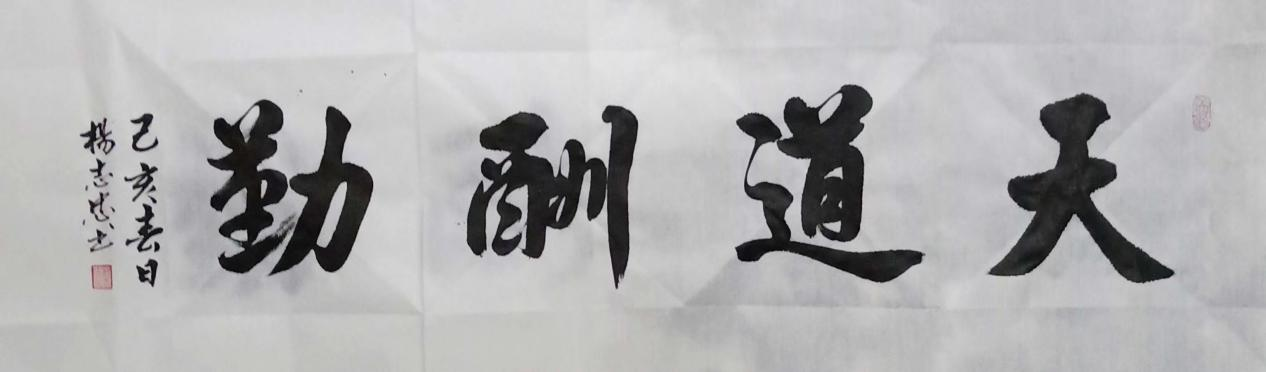 天道酬勤
己亥春日
楊志忠书